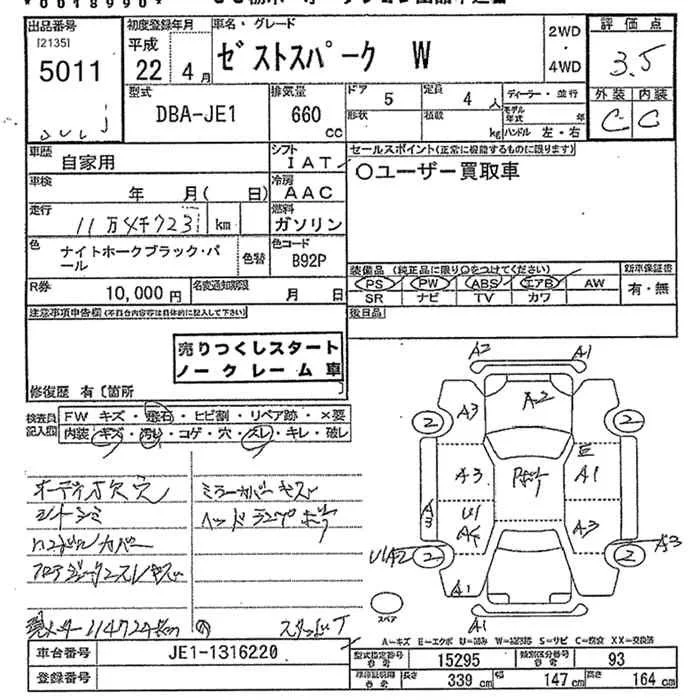 *0018990*
出品番号 [2135]
5011
初度登録年月
平成 22年 4月
車名・グレード
ゼストスパーク W
2WD
・
4WD
評価点
3.5
外装 内装
C C
型式
DBA-JE1
排気量
660 cc
ドア 5
定員 4人
形状
積載 kg
ディーラー・並行
モデル年式 年
ハンドル 左・右
車歴 自家用
シフト IAT
セールスポイント(正常に機能するものに限ります)
○ユーザー買取車
車検 年 月( 日)
冷房 AAC
走行 11万4千723 km
燃料 ガソリン
色 ナイトホークブラック・パール
色替
色コード B92P
装備品 (純正品に限り○をつけてください)
PS PW ABS エアB AW
SR ナビ TV カワ
新車保証書
有・無
R券 10,000円
名変通知期限 月 日
後日品
注意事項申告欄(不具合内容等は具体的に記入して下さい)
売りつくしスタート
ノークレーム車
修復歴 有〔箇所
検査員記入欄
FW キズ・飛石・ヒビ割・リペア跡・×要
内装・キズ・汚れ・コゲ・穴・スレ・キレ・破レ
オーディオ欠 穴
シートシミ
ミラーカバー キズ
ヘッドランプ
A2 A1
A3 A2
2 2
A3 A1
A3 U1 A4 A3
U1A2 2 2 A3
A1 A1
スペア
A=キズ E=エクボ U=凹み W=波跡 S=サビ C=腐食 XX=交換済
車台番号 JE1-1316220
登録番号
型式指定番号 15295
類別区分番号 93
長さ 339cm
幅 147cm
高さ 164cm